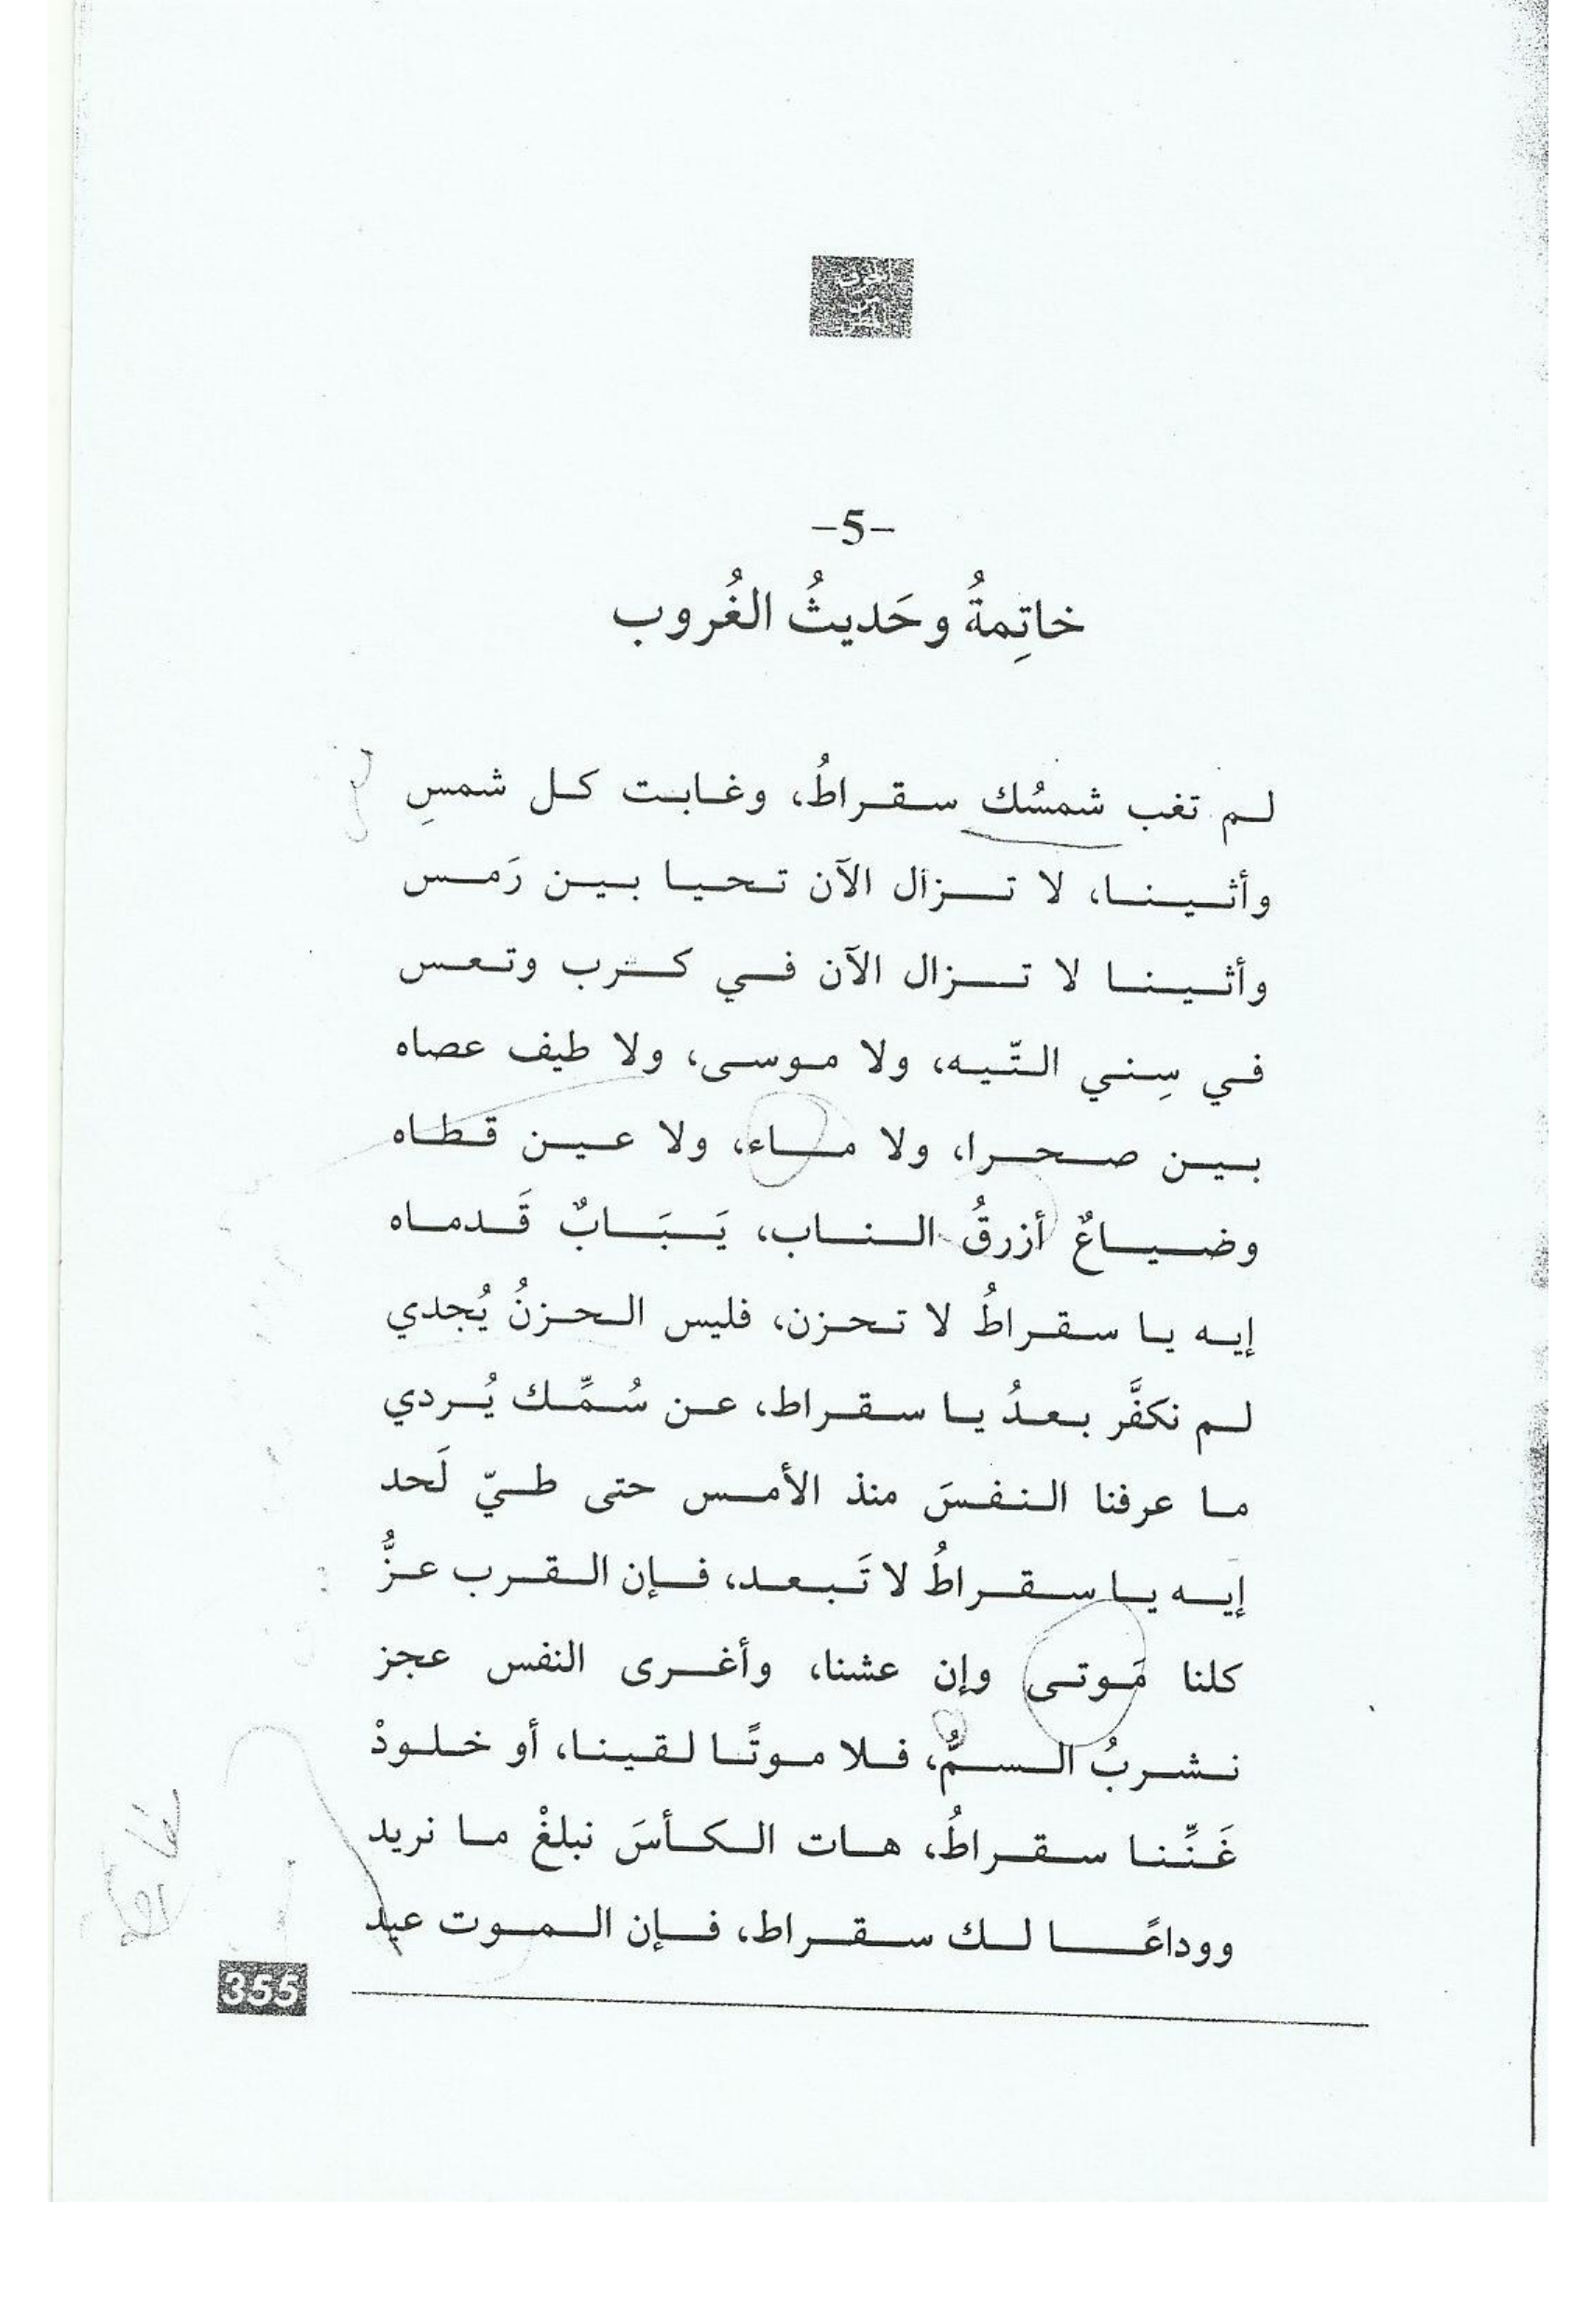 -5-
خاتِمةُ وحَديثُ الغُروب
لم تغب شمسُك سقراطُ، وغابت كل شمسِ
وأثينا، لا تزال الآن تحيا بين رَمس
وأثينا لا تزال الآن في كرب وتعس
في سِني التّيه، ولا موسى، ولا طيف عصاه
بين صحرا، ولا ماء، ولا عين قطاه
وضياعٌ أزرقُ الناب، يَبَابٌ قَدماه
إيه يا سقراطُ لا تحزن، فليس الحزنُ يُجدي
لم نكفَّر بعدُ يا سقراط، عن سُمِّك يُردي
ما عرفنا النفسَ منذ الأمس حتى طيّ لَحد
إيه يا سقراطُ لا تَبعد، فإن القرب عزُّ
كلنا مَوتى وإن عشنا، وأغرى النفس عجز
نشربُ السمُّ، فلا موتًا لقينا، أو خلودْ
غَنِّنا سقراطُ، هات الكأسَ نبلغْ ما نريد
ووداعًا لك سقراط، فإن الموت عيد
355